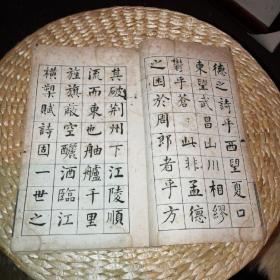 德之詩乎西望夏口
東望武昌山川相繆
鬱乎蒼〻此非孟德
之困於周郎者乎方
其破荆州下江陵順
流而東也舳艫千里
旌旗蔽空釃酒臨江
橫槊賦詩固一世之